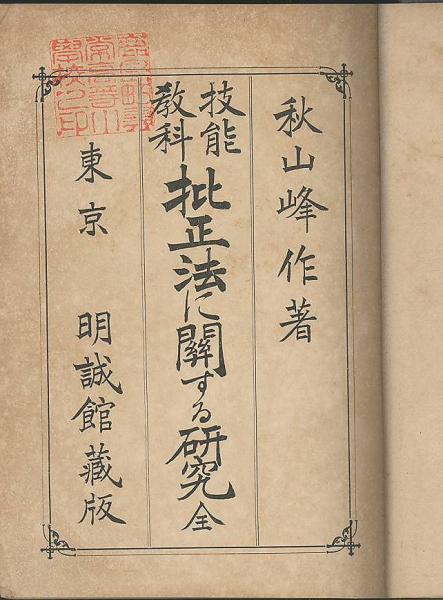 秋山峰作著
技能
教科
批正法に關する研究全
東京 明誠館藏版